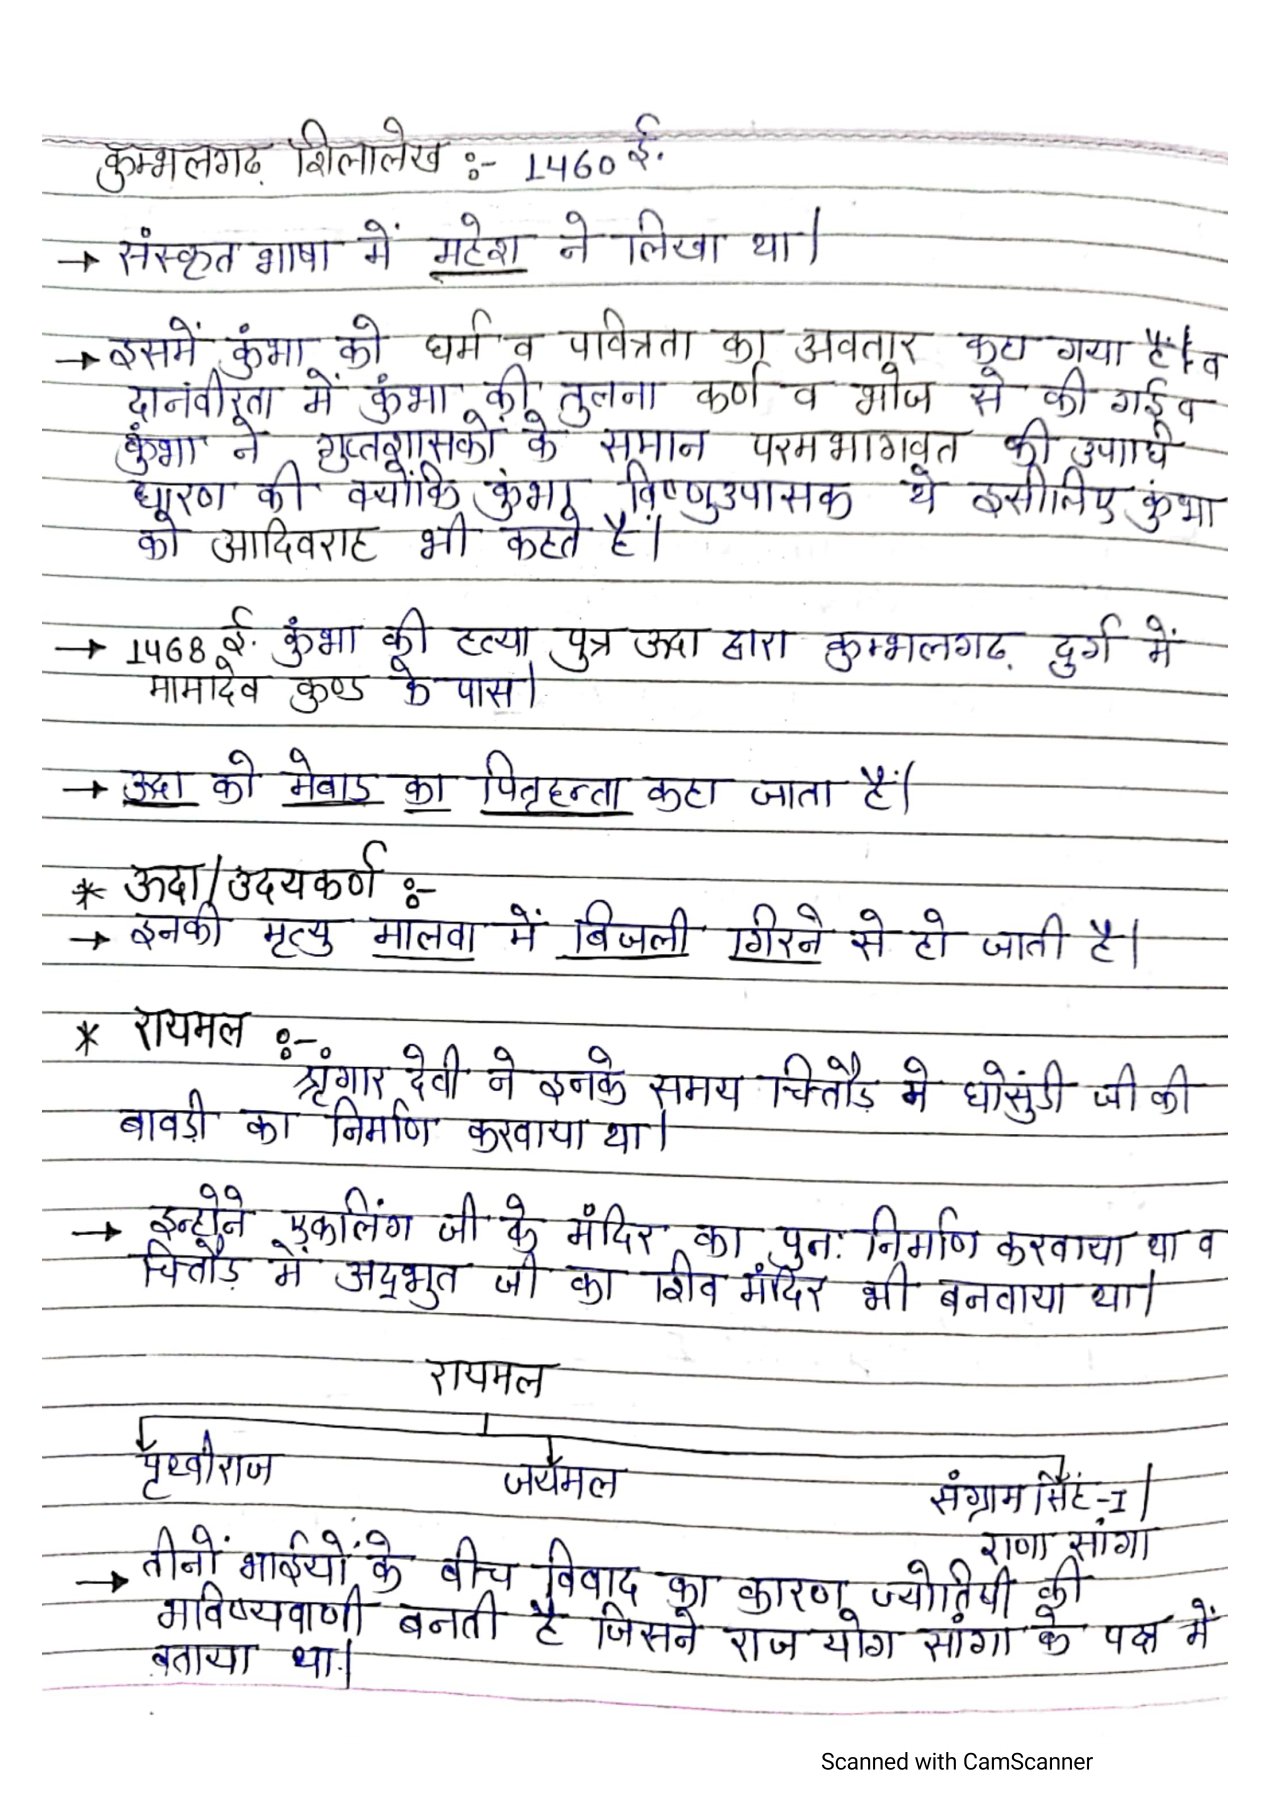 कुम्भलगढ़ शिलालेख :- 1460 ई.
→ संस्कृत भाषा में महेश ने लिखा था।
→ इसमें कुंभा को धर्म व पवित्रता का अवतार कहा गया है। व
दानवीरता में कुंभा की तुलना कर्ण व भोज से की गई व
कुंभा ने गुप्तशासकों के समान परमभागवत की उपाधि
धारण की क्योंकि कुंभा विष्णुउपासक थे इसीलिए कुंभा
को आदिवराह भी कहते हैं।
→ 1468 ई. कुंभा की हत्या पुत्र ऊदा द्वारा कुम्भलगढ़ दुर्ग में
मामादेव कुण्ड के पास।
→ ऊदा को मेवाड का पितृहन्ता कहा जाता हैं।
* ऊदा/उदयकर्ण :-
→ इनकी मृत्यु मालवा में बिजली गिरने से हो जाती है।
* रायमल :-
श्रृंगार देवी ने इनके समय चित्तौड़ मे घोसुंडी जी की
बावड़ी का निर्माण करवाया था।
→ इन्होने एकलिंग जी के मंदिर का पुन: निर्माण करवाया था व
चित्तौड़ में अद्भुत जी का शिव मंदिर भी बनवाया था।
रायमल
पृथ्वीराज जयमल संग्राम सिंह-I
राणा सांगा
→ तीनों भाईयों के बीच विवाद का कारण ज्योतिषी की
भविष्यवाणी बनती है जिसने राज योग सांगा के पक्ष में
बताया था।
Scanned with CamScanner